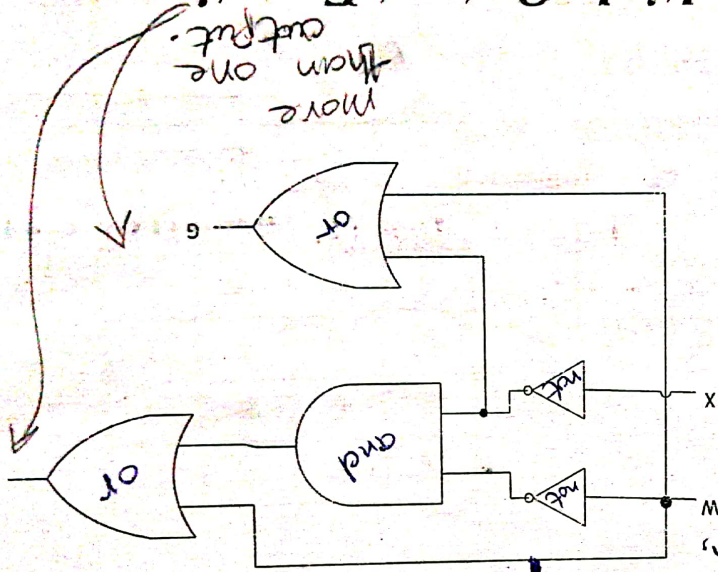 W
X
not
not
and
or
or
G
more
than one
output.